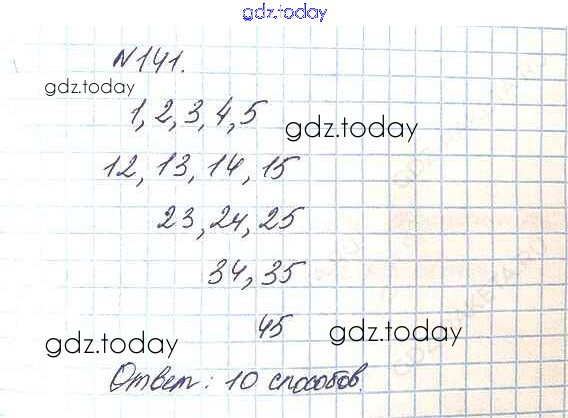 gdz.today
N141.
gdz.today
1, 2, 3, 4, 5
gdz.today
12, 13, 14, 15
23, 24, 25
34, 35
45
gdz.today
gdz.today
Ответ: 10 способов.